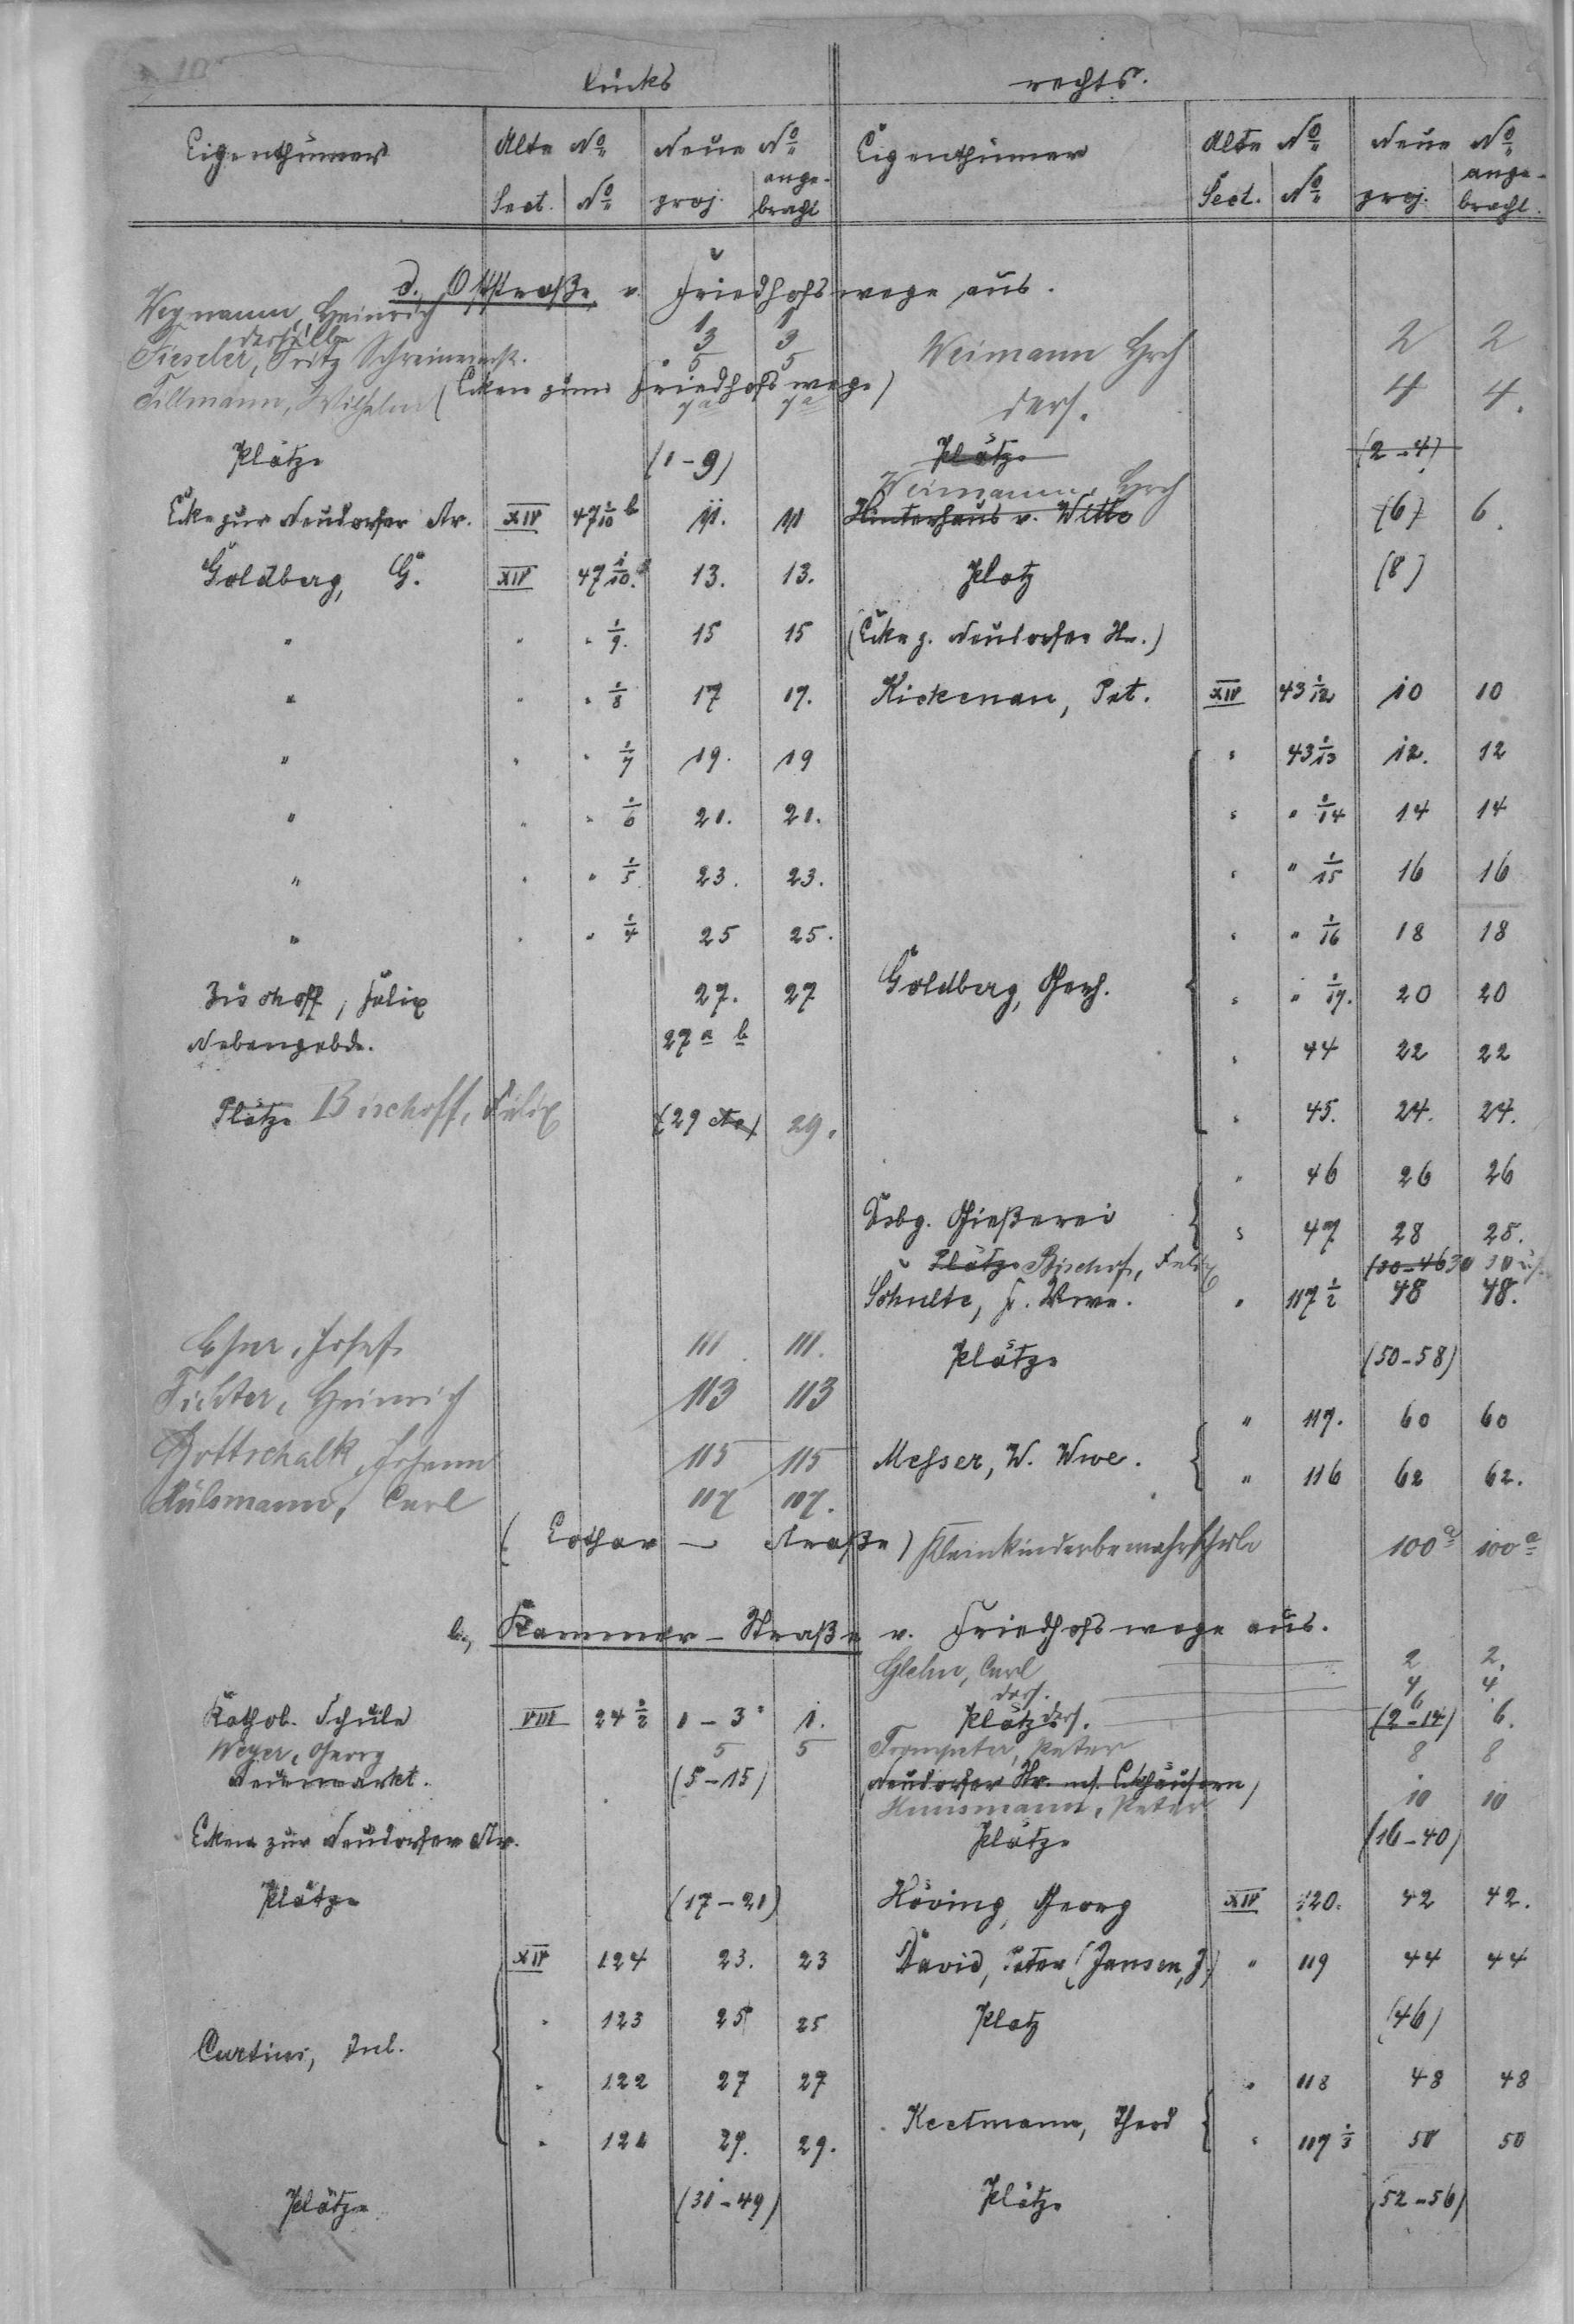 10
links rechts.
Eigenthümer Alte No Neue No Eigenthümer Alte No Neue No
Sect. No proj. angebracht Sect. No proj. angebracht.
d. Oststraße v. Friedhofswege aus.
Wegmann, Heinrich 1 1
derselbe 3 3 Weimann Hrch 2 2
Fieseler, Fritz Schreinermstr. 5 5
(Ecken zum Friedhofswege)
Tillmann, Wilhelm 7a 7a ders. 4 4.
Plätze (1-9) Plätze (2-4)
Weimann, Hrch
Ecke zur Neudorfer Str. XIV 47 1/10 b 11. 11 Hinterhaus v. Witte (6) 6.
Goldberg, G. XIV 47 1/10. 13. 13. Platz (8)
" " " 1/9. 15 15 (Ecke z. Neudorfer Str.)
" " " 1/8 17 17. Kickenau, Pet. XIV 43 1/12 10 10
" " " 1/7 19. 19 " 43 1/13 12. 12
" " " 1/6 21. 21. " " 1/14 14 14
" " " 1/5 23. 23. " " 1/15 16 16
" " " 1/4 25 25. " " 1/16 18 18
Bischoff, Felix 27. 27 Goldberg, Gerh. " " 1/17. 20 20
Nebengebde. 27a b " 44 22 22
Plätze Bischoff, Felix (29 etc) 29. " 45. 24. 24.
" 46 26 26
Dsbg. Gießerei " 47 28 28.
Plätze Bischof, Felix (30-46) 30 30
Schulte, F. Wwe. " 117 1/2 48 48.
Esser, Josef 111. 111. Plätze (50-58)
Fichter, Heinrich 113 113
" 117. 60 60
Gottschalk, Johann 115 115 Messer, W. Wwe. " 116 62 62.
Hülsmann, Carl 117 117.
(Lothar - Straße) Kleinkinderbewahrschule 100a 100a
b, Kammer-Straße v. Friedhofswege aus.
Glehn, Carl 2 2.
ders. 4 4
Kathol. Schule VIII 24 2/2 1-3 1. Plätze ders. (2-14) 6 6.
Weyer, Georg 5 5 Trompeter, Peter 8 8
Neuemarkt. (5-15) Neudorfer Str. mit Eckhäusern)
Hunsmann, Peter 10 10
Ecken zur Neudorfer Str. Plätze (16-40)
Plätze (17-21) Höving, Georg XIV 120. 42 42.
XIV 124 23. 23 David, Peter (Jansen, J.) " 119 44 44
" 123 25 25 Platz (46)
Curtius, Jul.
" 122 27 27 " 118 48 48
Keetmann, Theod
" 121 29. 29. " 117 1/3 50 50
Plätze (31-49) Plätze (52-56)